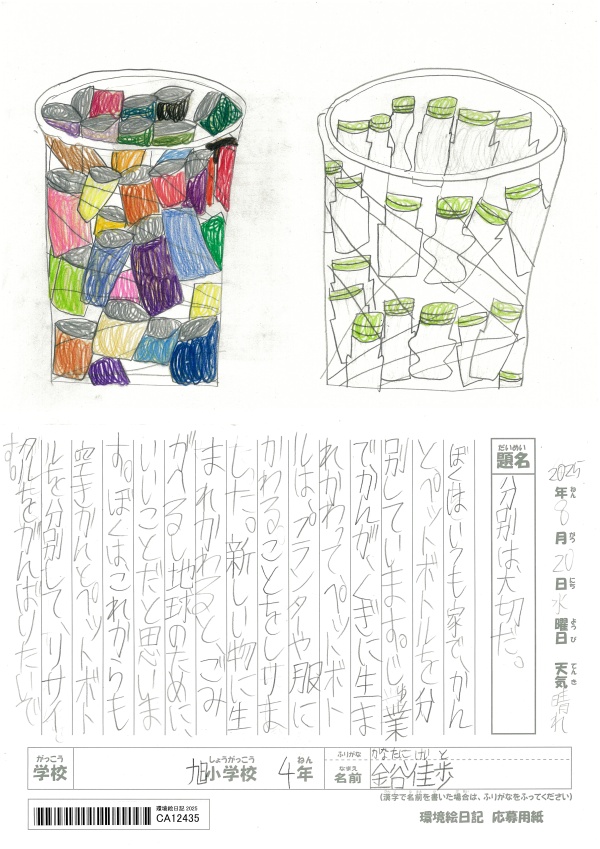 2025年8月20日水曜日 天気晴れ
ねん がつ にち ようび てんき
だいめい
題名
分別は大切だ。
ぼくはいつも家で、かん
とペットボトルを分
別しています。じゅ業
でかんがくぎに生ま
れかわって、ペットボト
ルは、プランターや服に
かわることをしりま
した。新しい物に生
まれかわると、ごみ
がへるし地球のために
いいことだと思いま
す。ぼくはこれからも
空きかんとペットボト
ルを分別して、リサイ
クルをがんばりたいで
す。
がっこう
学校
旭小学校 4年
しょうがっこう ねん
ふりがな
なまえ
名前
かなたに けいと
金谷佳歩
(漢字で名前を書いた場合は、ふりがなをふってください)
環境絵日記 2025
CA12435
環境絵日記 応募用紙